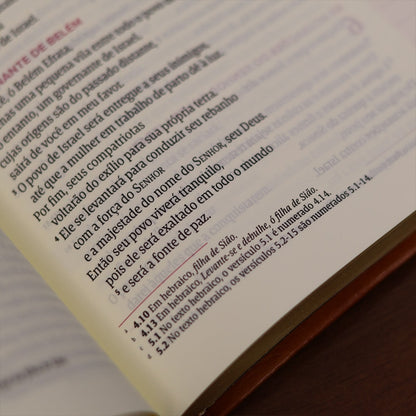 de Israel.
NANTE DE BELÉM
ó Belém Efrata,
mas uma pequena vila entre todo o povo
entanto, um governante de Israel,
cujas origens são do passado distante,
sairá de você em meu favor.
3 O povo de Israel será entregue a seus inimigos
até que a mulher em trabalho de parto dê à luz.
Por fim, seus compatriotas
voltarão do exílio para sua própria terra.
4 Ele se levantará para conduzir seu rebanho
com a força do SENHOR
e a majestade do nome do SENHOR, seu Deus.
Então seu povo viverá tranquilo,
pois ele será exaltado em todo o mundo
5 e será a fonte de paz.
4.10 Em hebraico, filha de Sião.
b 4.13 Em hebraico, Levante-se e debulhe, ó filha de Sião.
c 5.1 No texto hebraico, o versículo 5.1 é numerado 4.14.
d 5.2 No texto hebraico, os versículos 5.2-15 são numerados 5.1-14.